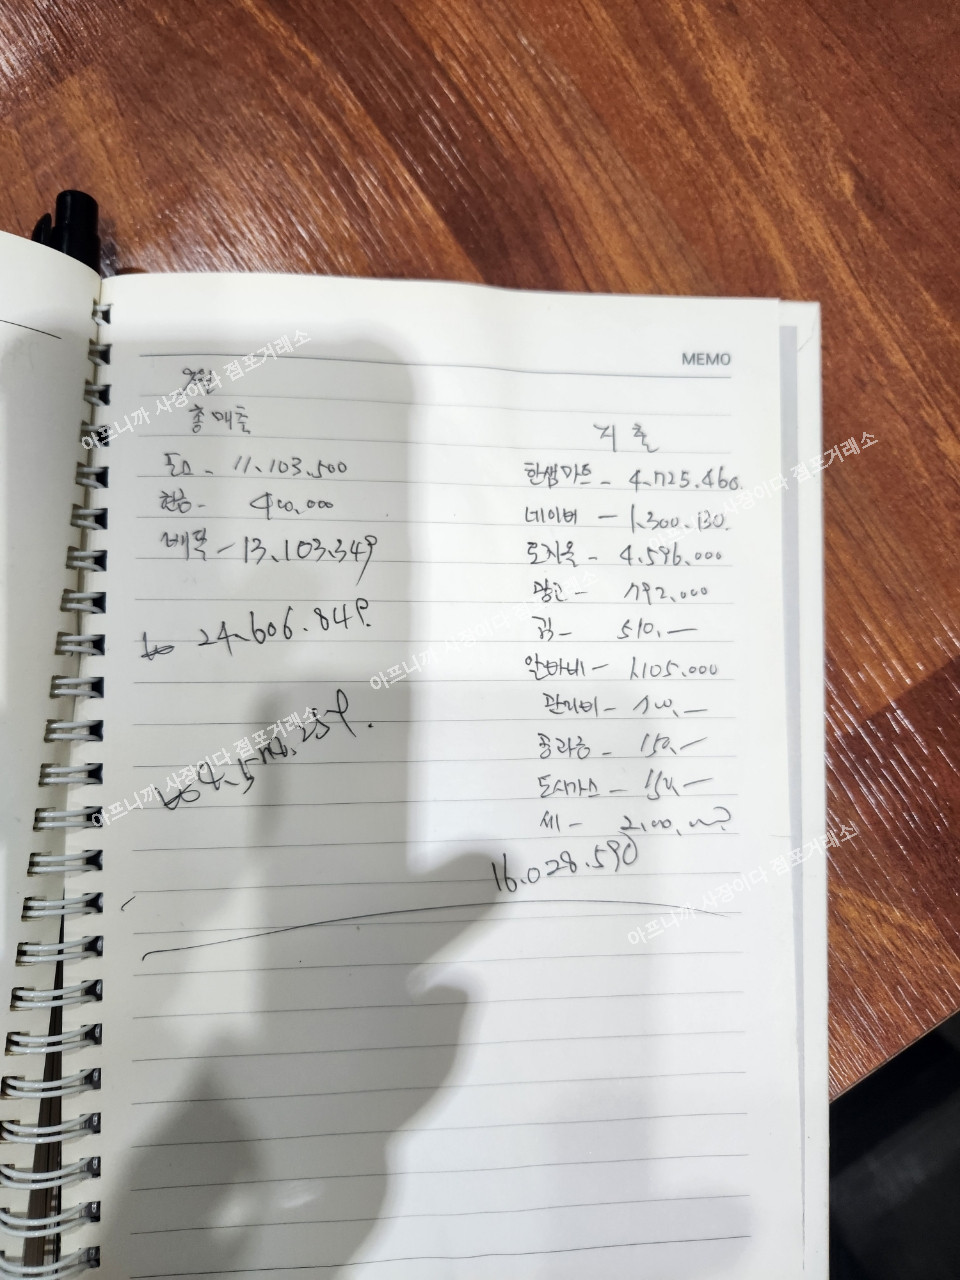 MEMO
총매출
토스 - 11,103,500
현금 - 400,000
배민 - 13,103,349
24,606,849.
지출
한샘마트 - 4,725,460.
네이버 - 1,300,130.
도지울 - 4,596,000
광고 - 792,000
김 - 510, -
알바비 - 1,105,000
관리비 - 700, -
공과금 - 150, -
도시가스 - 150, -
세 -
16,028,590
아프니까 사장이다 점포거래소
아프니까 사장이다 점포거래소
아프니까 사장이다 점포거래소
아프니까 사장이다 점포거래소
아프니까 사장이다 점포거래소